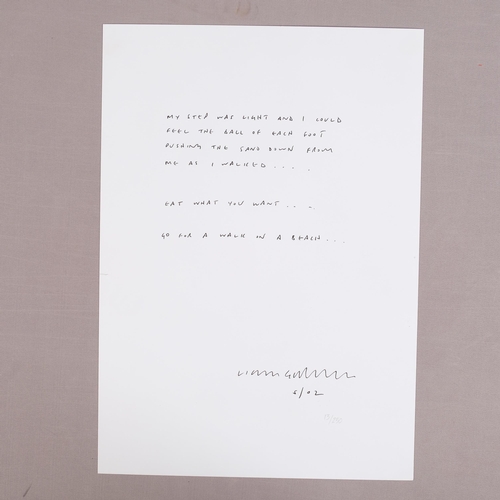 MY STEP WAS LIGHT AND I COULD
FEEL THE BALL OF EACH FOOT
PUSHING THE SAND DOWN FROM
ME AS I WALKED....
EAT WHAT YOU WANT...
GO FOR A WALK ON A BEACH...
6/02